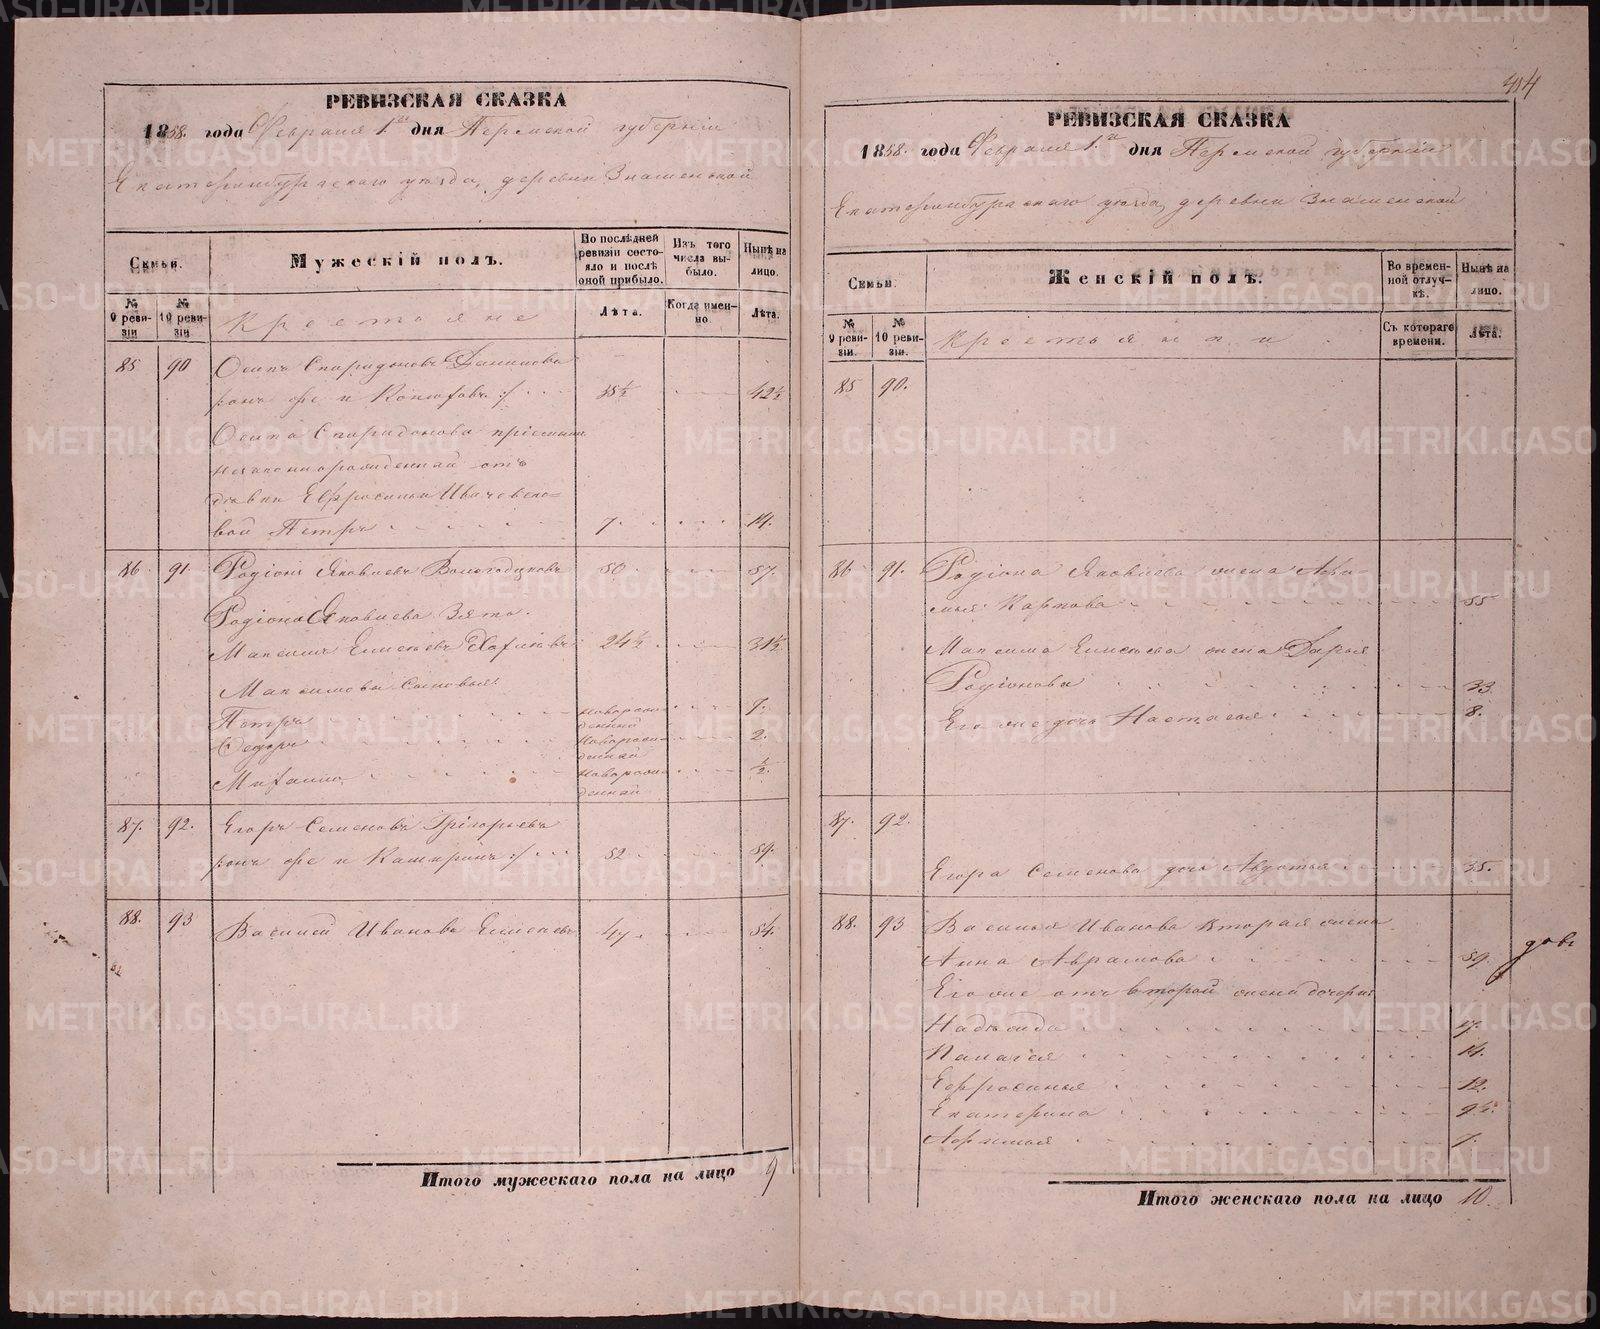 РЕВИЗСКАЯ СКАЗКА
1858. года Февраля 1го дня Пермской губернии
Екатеринбургскаго уезда, деревни Знаменской
Семьи.
Мужескій полъ.
По послѣдней ревизіи состояло и послѣ оной прибыло.
Изъ того числа выбыло.
Нынѣ на лицо.
№ 9 ревизіи
№ 10 ревизіи
Крестьяне
Лѣта.
Когда именно.
Лѣта.
85 90 Осипъ Спиридоновъ Данилова
онъ же и 35½ 42½
Осипа Спиридонова пріемышъ
незаконнорожденный отъ
девки Ефросиньи
вой Петръ 7. 14.
86 91 Родіонъ Яковлевъ Вологодцковъ 50 57.
Родіона Яковлева Зять
Максимъ Елисѣевъ 24½ 31½
Максимовы Сыновья:
Петръ новорожденный 7.
Ѳедоръ новорожденный 2.
Михаилъ новорожденный ½.
87. 92. Егоръ Семеновъ Григорьевъ
онъ же и Каширинъ 52 59.
88. 93 Василій Ивановъ Елисѣевъ 47. 54.
Итого мужескаго пола на лицо 9
РЕВИЗСКАЯ СКАЗКА
1858. года Февраля 1го дня Пермской губерніи
Екатеринбургскаго уезда, деревни Знаменской
Семьи.
Женскій полъ.
Во временной отлучкѣ.
Нынѣ на лицо.
№ 9 ревизіи.
№ 10 ревизіи.
Крестьянки
Съ котораго времени.
Лѣта.
85 90.
86 91. Родіона Яковлева жена
Карпова 55
Максима Елисѣева жена Дарья
Родіонова 33.
Его же дочь Настасья 8.
87. 92.
Егора Семенова дочь Авдотья 35.
88. 93 Василья Иванова вторая жена
Анна Аврамова 59.
Его же отъ второй жены дочери:
Надѣжда 17.
Палагея 14.
Ефросинья 12.
Екатерина 9½.
Афимья 7.
Итого женскаго пола на лицо 10.
METRIKI.GASO-URAL.RU